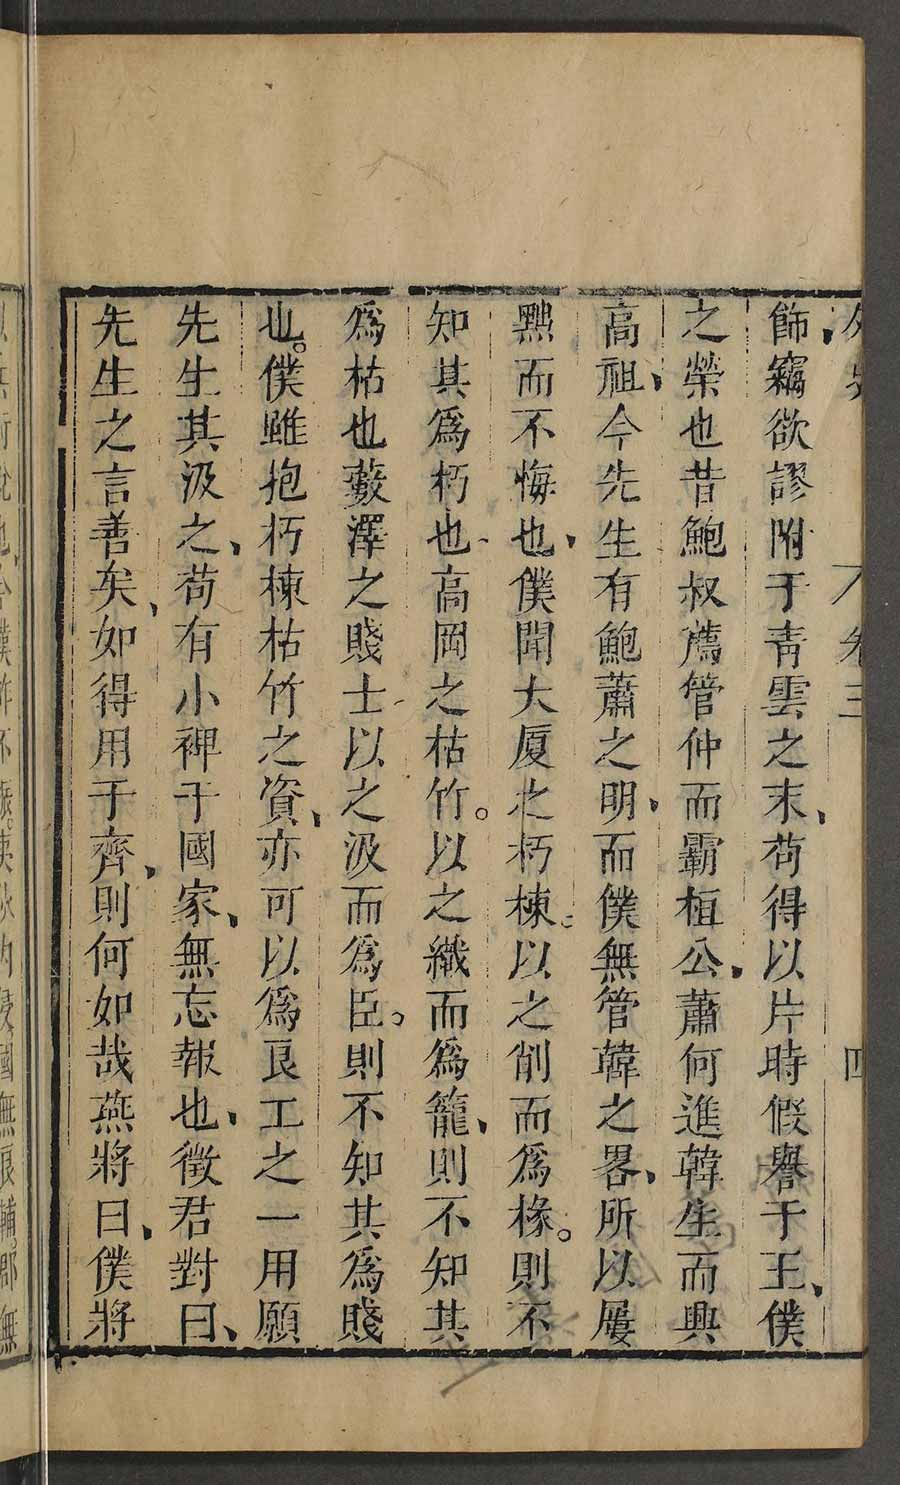 外史 卷三 四
飾竊欲謬附于青雲之末、苟得以片時假譽于王、僕
之榮也昔鮑叔薦管仲而霸桓公、蕭何進韓生而興
高祖、今先生有鮑蕭之明、而僕無管韓之畧、所以屢
黜而不悔也、僕聞大厦之朽棟。以之削而爲椽。則不
知其爲朽也、高岡之枯竹。以之織而爲籠、則不知其
爲枯也藪澤之賤士以之汲而爲臣。則不知其爲賤
也。僕雖抱朽棟枯竹之資、亦可以爲良工之一用願
先生其汲之、苟有小裨于國家、無忘報也、徵君對曰、
先生之言善矣、如得用于齊、則何如哉燕將曰、僕將